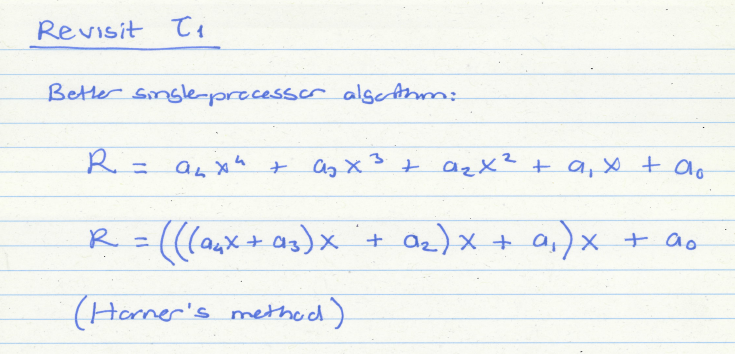 Revisit T₁
Better single-processor algorithm:
R = a₄x⁴ + a₃x³ + a₂x² + a₁x + a₀
R = (((a₄x + a₃)x + a₂)x + a₁)x + a₀
(Horner's method)